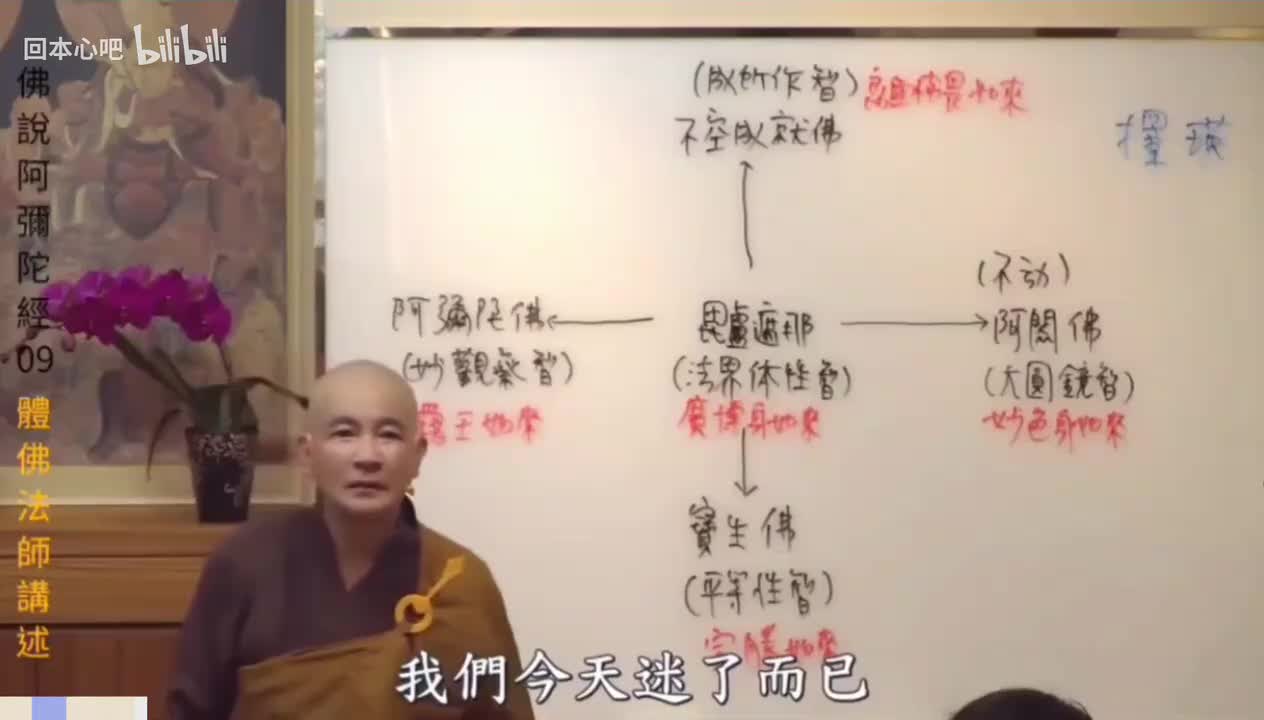 回本心吧 bilibili
佛說阿彌陀經09 體佛法師講述
(成所作智) 離怖畏如來
不空成就佛
(不动)
阿彌陀佛
毘盧遮那
阿閦佛
(妙觀察智)
(法界体性智)
(大圓鏡智)
王如來
廣博身如來
妙色身如來
寶生佛
(平等性智)
我們今天迷了而已